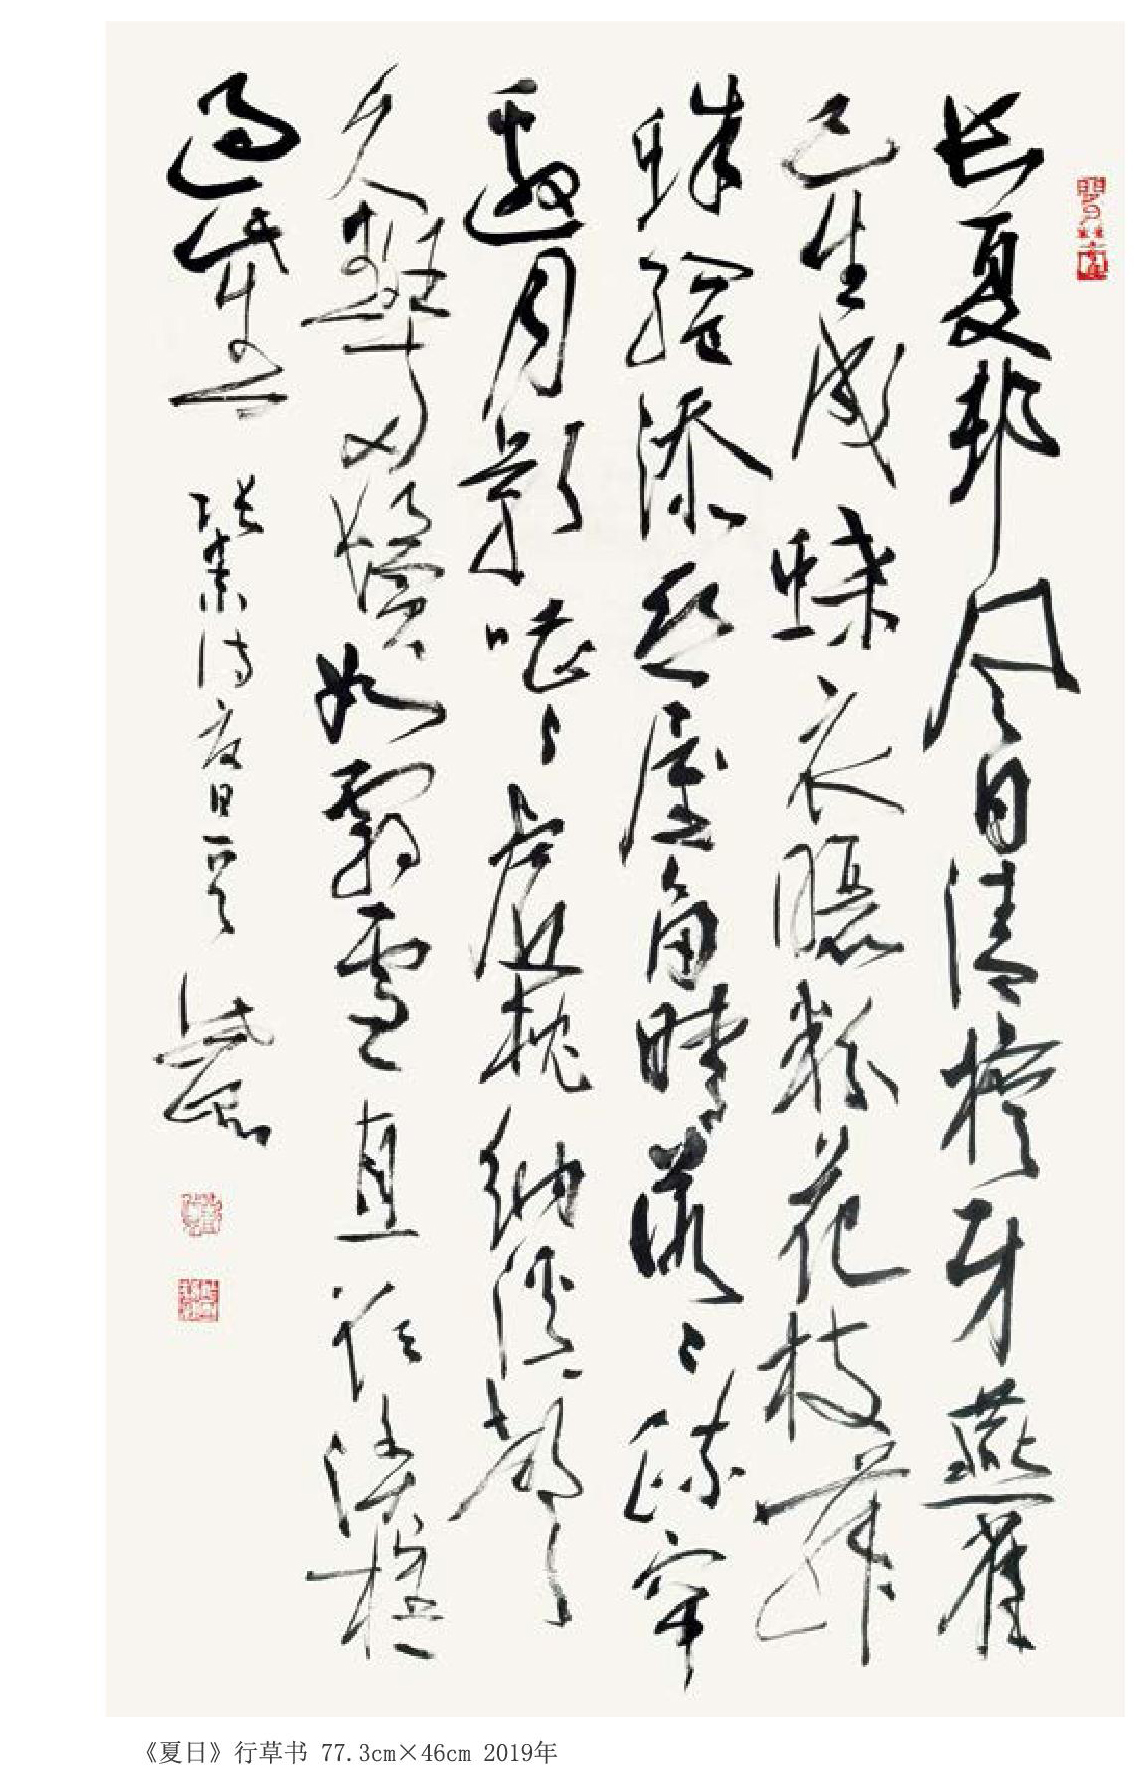 长夏邨风日清檐牙燕雀
已生成蝶衣晒粉花枝舞
蛛网添丝屋角晴落〻疏帘
邀月影嘈〻虚枕纳溪声
久斑两鬓如霜雪直欲渔樵
过此生 张耒诗夏日一首
《夏日》行草书 77.3cm×46cm 2019年